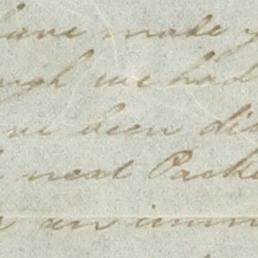 have made y
ugh we had
ve been dis
next Packe
an imm